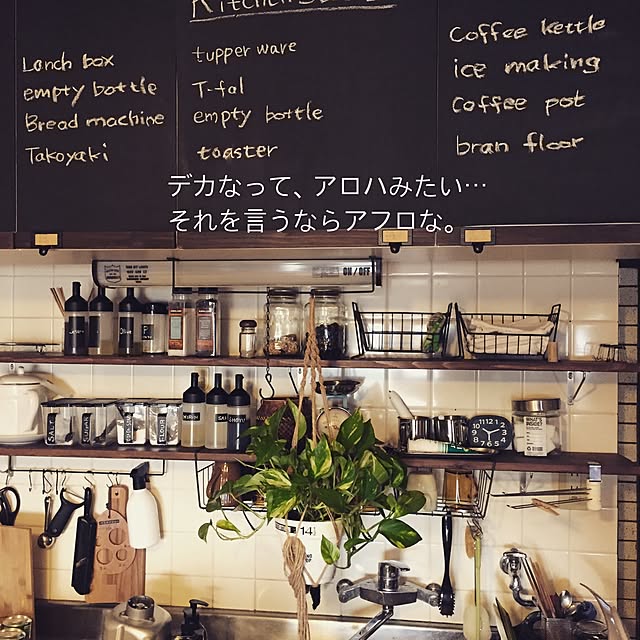 Kitchen
Lanch box
empty bottle
Bread machine
Takoyaki
tupper ware
T-fal
empty bottle
toaster
Coffee kettle
ice making
Coffee pot
bran floor
デカなって、アロハみたい…
それを言うならアフロな。
ON/OFF
SALT
SUGAR
FLOUR
14
WHAT'S
INSIDE?